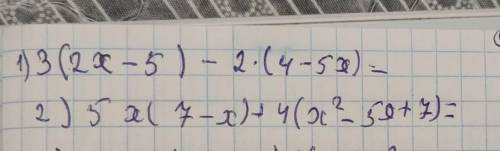 1) 3(2x - 5) - 2·(4 - 5x) =
2) 5 x( 7 - x) + 4(x² - 5x + 7) =